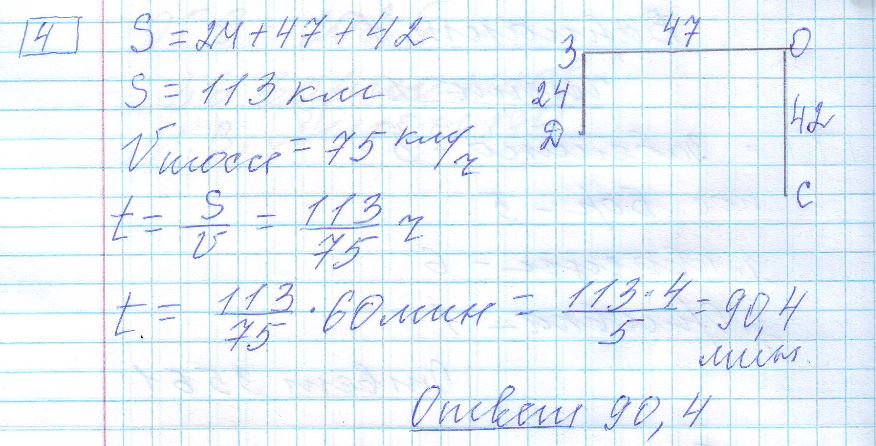 4
S = 24 + 47 + 42
S = 113 км
Vшосси = 75 км/ч
t = S/v = 113/75 ч
t = 113/75 · 60 мин = 113·4/5 = 90,4 мин.
Ответ 90,4
З 47 О
24
Д
42
С